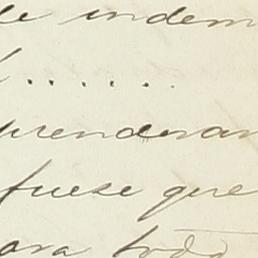 de indem
l ......
prenderan
fuese que
para todo